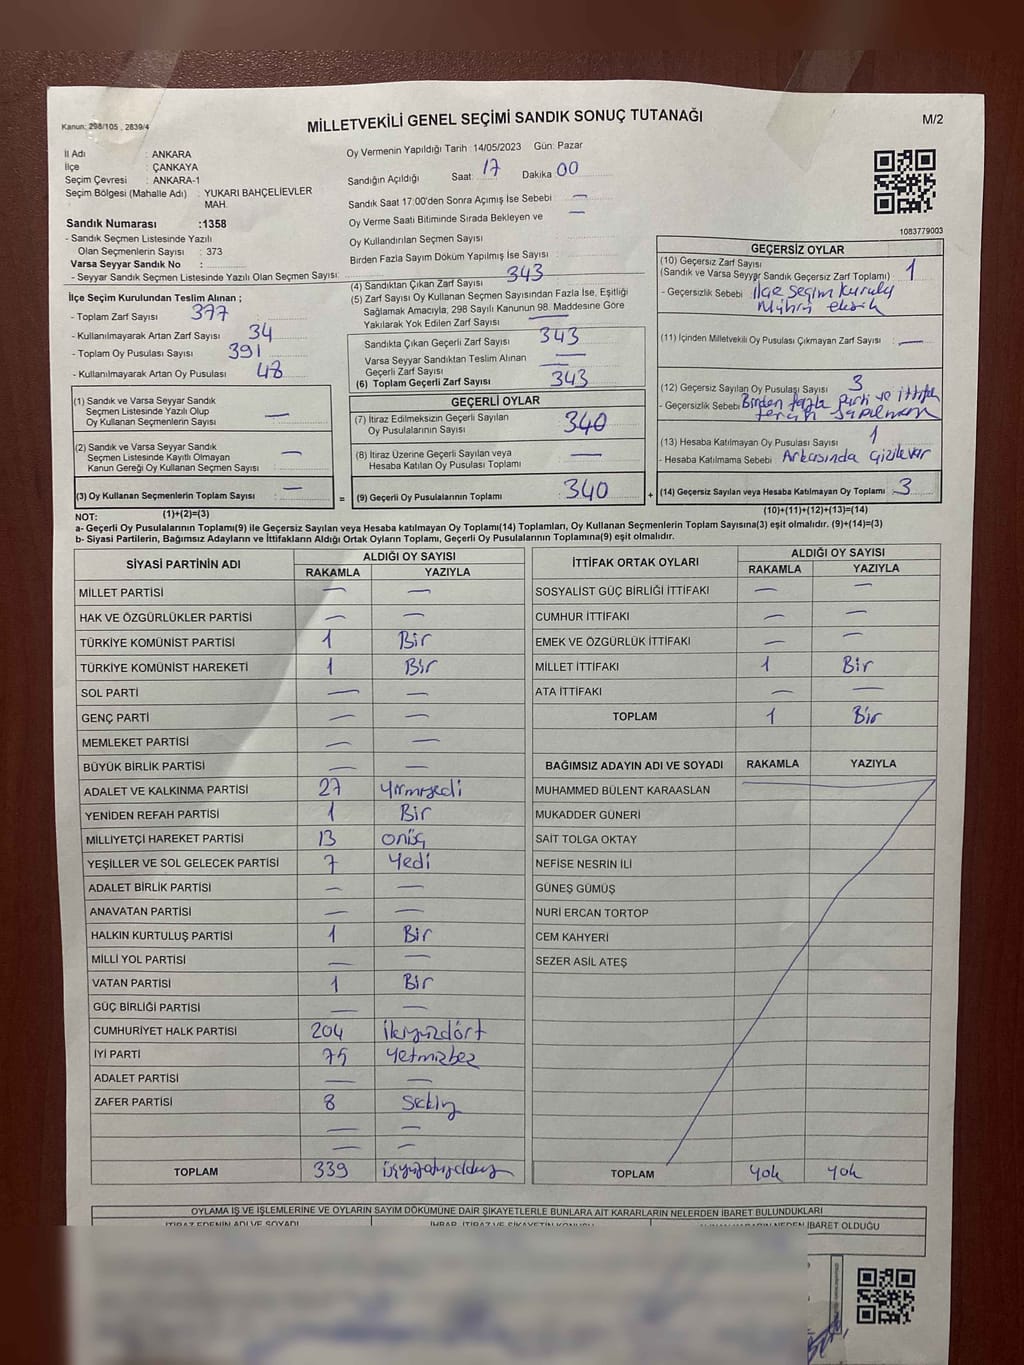 Kanun: 298/105 , 2839/4
MİLLETVEKİLİ GENEL SEÇİMİ SANDIK SONUÇ TUTANAĞI
M/2
İl Adı : ANKARA
İlçe : ÇANKAYA
Seçim Çevresi : ANKARA-1
Seçim Bölgesi (Mahalle Adı) : YUKARI BAHÇELİEVLER
MAH.
Sandık Numarası :1358
- Sandık Seçmen Listesinde Yazılı
Olan Seçmenlerin Sayısı : 373
Varsa Seyyar Sandık No :
- Seyyar Sandık Seçmen Listesinde Yazılı Olan Seçmen Sayısı:
Oy Vermenin Yapıldığı Tarih :14/05/2023 Gün: Pazar
Sandığın Açıldığı Saat: 17 Dakika 00
Sandık Saat 17:00'den Sonra Açımış İse Sebebi : —
Oy Verme Saati Bitiminde Sırada Bekleyen ve —
Oy Kullandırılan Seçmen Sayısı
Birden Fazla Sayım Döküm Yapılmış İse Sayısı :
1083779003
İlçe Seçim Kurulundan Teslim Alınan ;
- Toplam Zarf Sayısı : 377
- Kullanılmayarak Artan Zarf Sayısı : 34
- Toplam Oy Pusulası Sayısı : 391
- Kullanılmayarak Artan Oy Pusulası : 48
(1) Sandık ve Varsa Seyyar Sandık
Seçmen Listesinde Yazılı Olup
Oy Kullanan Seçmenlerin Sayısı : —
(2) Sandık ve Varsa Seyyar Sandık
Seçmen Listesinde Kayıtlı Olmayan
Kanun Gereği Oy Kullanan Seçmen Sayısı : —
(3) Oy Kullanan Seçmenlerin Toplam Sayısı : —
(1)+(2)=(3)
(4) Sandıktan Çıkan Zarf Sayısı : 343
(5) Zarf Sayısı Oy Kullanan Seçmen Sayısından Fazla İse, Eşitliği
Sağlamak Amacıyla, 298 Sayılı Kanunun 98. Maddesine Göre
Yakılarak Yok Edilen Zarf Sayısı : —
Sandıkta Çıkan Geçerli Zarf Sayısı : 343
Varsa Seyyar Sandıktan Teslim Alınan
Geçerli Zarf Sayısı : —
(6) Toplam Geçerli Zarf Sayısı : 343
GEÇERLİ OYLAR
(7) İtiraz Edilmeksizin Geçerli Sayılan
Oy Pusulalarının Sayısı : 340
(8) İtiraz Üzerine Geçerli Sayılan veya
Hesaba Katılan Oy Pusulası Toplamı : —
= (9) Geçerli Oy Pusulalarının Toplamı : 340 +
GEÇERSİZ OYLAR
(10) Geçersiz Zarf Sayısı
(Sandık ve Varsa Seyyar Sandık Geçersiz Zarf Toplamı) : 1
- Geçersizlik Sebebi : İlçe Seçim Kurulu
Mührü eksik
(11) İçinden Milletvekili Oy Pusulası Çıkmayan Zarf Sayısı : —
(12) Geçersiz Sayılan Oy Pusulası Sayısı : 3
- Geçersizlik Sebebi Birden fazla Parti ve ittifak
(13) Hesaba Katılmayan Oy Pusulası Sayısı : 1
- Hesaba Katılmama Sebebi : Arkasında Çizik var
(14) Geçersiz Sayılan veya Hesaba Katılmayan Oy Toplamı : 3
(10)+(11)+(12)+(13)=(14)
NOT:
a- Geçerli Oy Pusulalarının Toplamı(9) ile Geçersiz Sayılan veya Hesaba katılmayan Oy Toplamı(14) Toplamları, Oy Kullanan Seçmenlerin Toplam Sayısına(3) eşit olmalıdır. (9)+(14)=(3)
b- Siyasi Partilerin, Bağımsız Adayların ve İttifakların Aldığı Ortak Oyların Toplamı, Geçerli Oy Pusulalarının Toplamına(9) eşit olmalıdır.
SİYASİ PARTİNİN ADI ALDIĞI OY SAYISI
RAKAMLA YAZIYLA
MİLLET PARTİSİ — —
HAK VE ÖZGÜRLÜKLER PARTİSİ — —
TÜRKİYE KOMÜNİST PARTİSİ 1 Bir
TÜRKİYE KOMÜNİST HAREKETİ 1 Bir
SOL PARTİ — —
GENÇ PARTİ — —
MEMLEKET PARTİSİ — —
BÜYÜK BİRLİK PARTİSİ — —
ADALET VE KALKINMA PARTİSİ 27 yirmiyedi
YENİDEN REFAH PARTİSİ 1 Bir
MİLLİYETÇİ HAREKET PARTİSİ 13 onüç
YEŞİLLER VE SOL GELECEK PARTİSİ 7 Yedi
ADALET BİRLİK PARTİSİ — —
ANAVATAN PARTİSİ — —
HALKIN KURTULUŞ PARTİSİ 1 Bir
MİLLİ YOL PARTİSİ — —
VATAN PARTİSİ 1 Bir
GÜÇ BİRLİĞİ PARTİSİ — —
CUMHURİYET HALK PARTİSİ 204 ikiyüzdört
İYİ PARTİ 75 Yetmişbeş
ADALET PARTİSİ — —
ZAFER PARTİSİ 8 Sekiz
— —
— —
TOPLAM 339 üçyüzotuzdokuz
İTTİFAK ORTAK OYLARI ALDIĞI OY SAYISI
RAKAMLA YAZIYLA
SOSYALİST GÜÇ BİRLİĞİ İTTİFAKI — —
CUMHUR İTTİFAKI — —
EMEK VE ÖZGÜRLÜK İTTİFAKI — —
MİLLET İTTİFAKI 1 Bir
ATA İTTİFAKI — —
TOPLAM 1 Bir
BAĞIMSIZ ADAYIN ADI VE SOYADI RAKAMLA YAZIYLA
MUHAMMED BÜLENT KARAASLAN
MUKADDER GÜNERİ
SAİT TOLGA OKTAY
NEFİSE NESRİN İLİ
GÜNEŞ GÜMÜŞ
NURİ ERCAN TORTOP
CEM KAHYERİ
SEZER ASİL ATEŞ
TOPLAM yok yok
OYLAMA İŞ VE İŞLEMLERİNE VE OYLARIN SAYIM DÖKÜMÜNE DAİR ŞİKAYETLERLE BUNLARA AİT KARARLARIN NELERDEN İBARET BULUNDUKLARI
İTİRAZ EDENİN ADI VE SOYADI İHBAR, İTİRAZ VE ŞİKAYETİN KONUSU NEDEN İBARET OLDUĞU